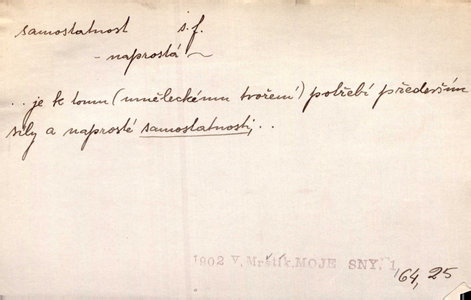 samostatnost s. f.
- naprostá ~
.. je k tomu (uměleckému tvoření) potřebí především
síly a naprosté samostatnosti, ..
1902 V. Mrštík, MOJE SNY, 1,
164, 25